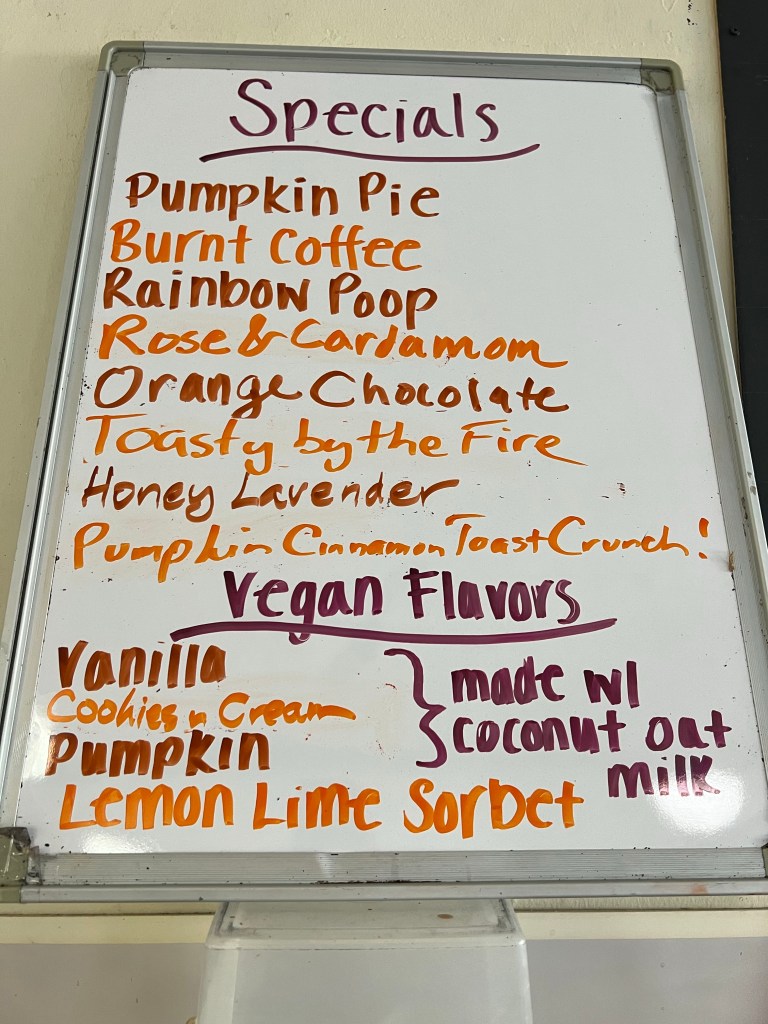 Specials
Pumpkin Pie
Burnt Coffee
Rainbow Poop
Rose & Cardamom
Orange Chocolate
Toasty by the Fire
Honey Lavender
Pumpkin Cinnamon Toast Crunch!
Vegan Flavors
Vanilla
Cookies n Cream
Pumpkin
} made w/
coconut oat
milk
Lemon Lime Sorbet